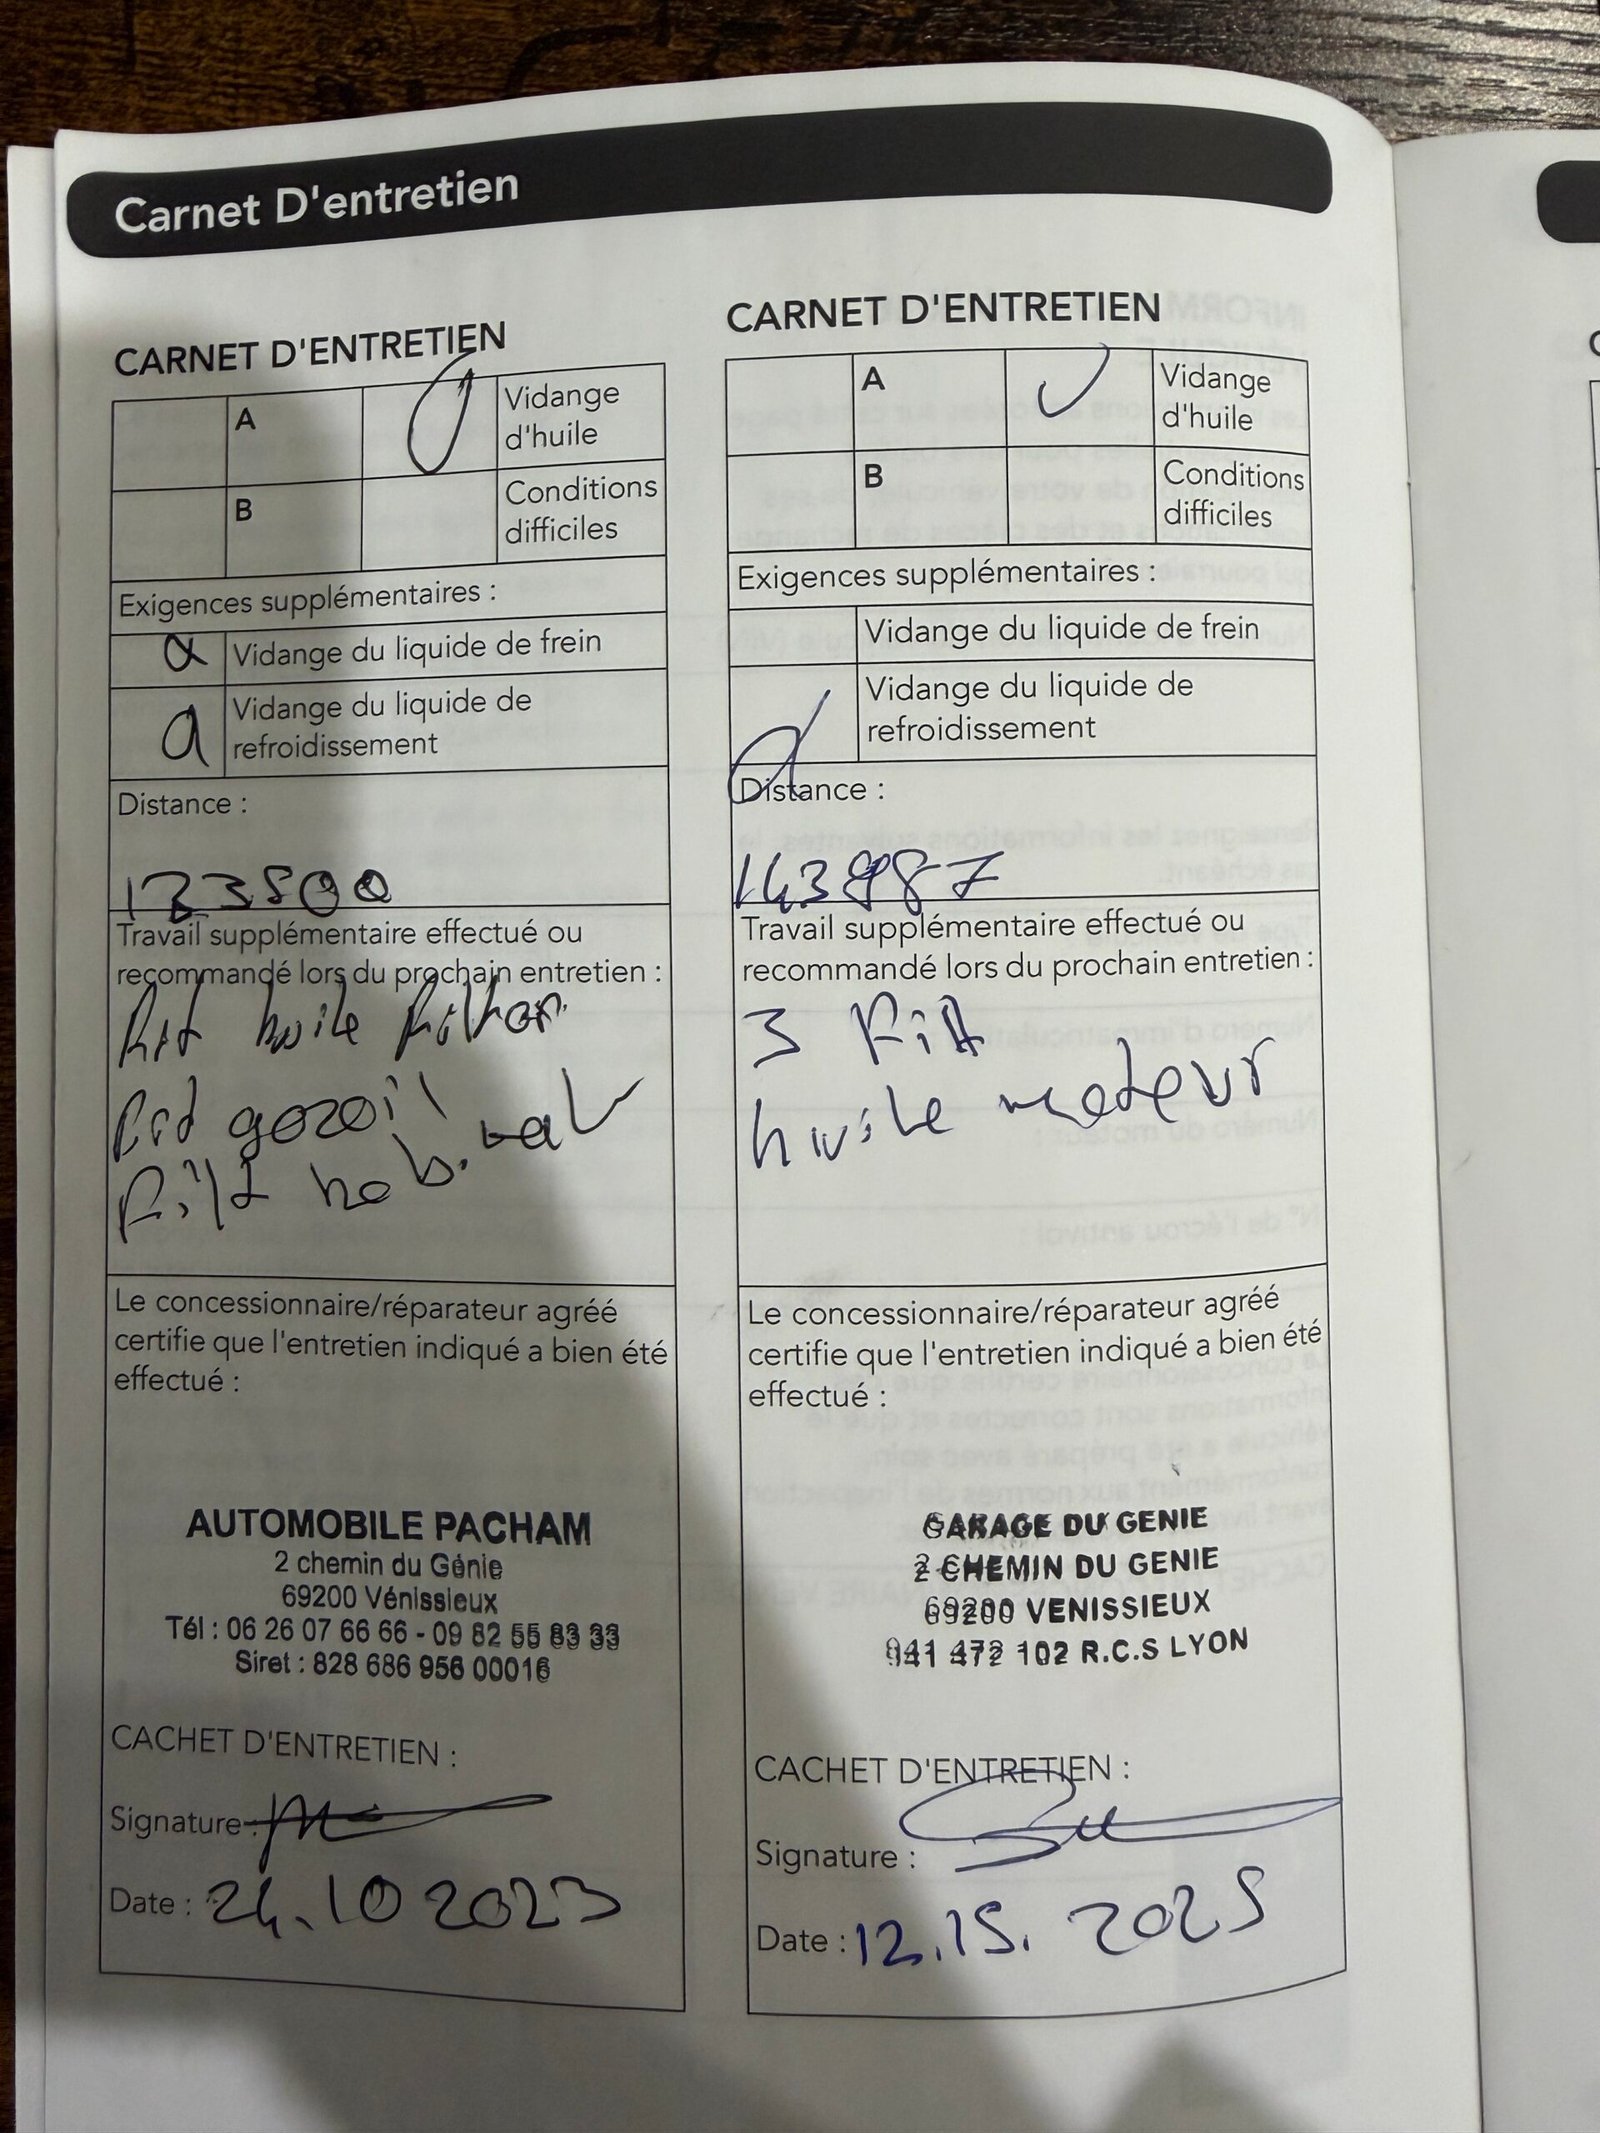 Carnet D'entretien
CARNET D'ENTRETIEN
A
Vidange
d'huile
B
Conditions
difficiles
Exigences supplémentaires :
Vidange du liquide de frein
Vidange du liquide de
refroidissement
Distance :
123800
Travail supplémentaire effectué ou
recommandé lors du prochain entretien :
huile
gozoil
Filt hab.
Le concessionnaire/réparateur agréé
certifie que l'entretien indiqué a bien été
effectué :
AUTOMOBILE PACHAM
2 chemin du Génie
69200 Vénissieux
Tél : 06 26 07 66 66 - 09 82 55 83 33
Siret : 828 686 956 00016
CACHET D'ENTRETIEN :
Signature :
Date : 24.10 2023
CARNET D'ENTRETIEN
A
Vidange
d'huile
B
Conditions
difficiles
Exigences supplémentaires :
Vidange du liquide de frein
Vidange du liquide de
refroidissement
Distance :
143987
Travail supplémentaire effectué ou
recommandé lors du prochain entretien :
3 Filt
huile moteur
Le concessionnaire/réparateur agréé
certifie que l'entretien indiqué a bien été
effectué :
GARAGE DU GENIE
2 CHEMIN DU GENIE
69200 VENISSIEUX
941 472 102 R.C.S LYON
CACHET D'ENTRETIEN :
Signature :
Date : 12.15. 2025